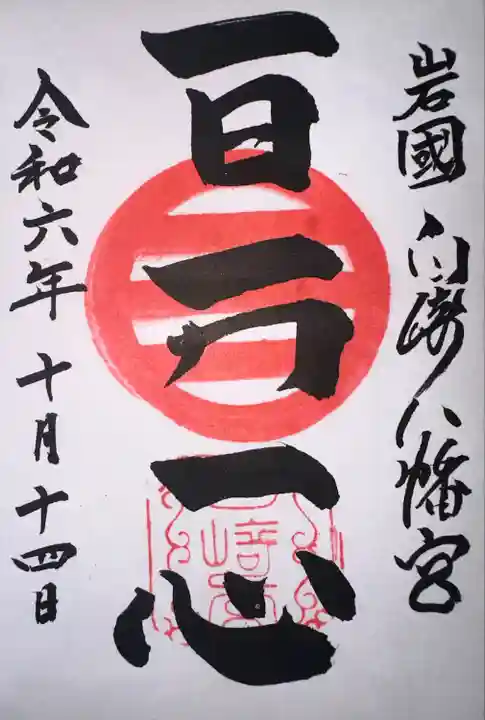 岩國 白崎八幡宮
一日一力一心
令和六年 十月十四日